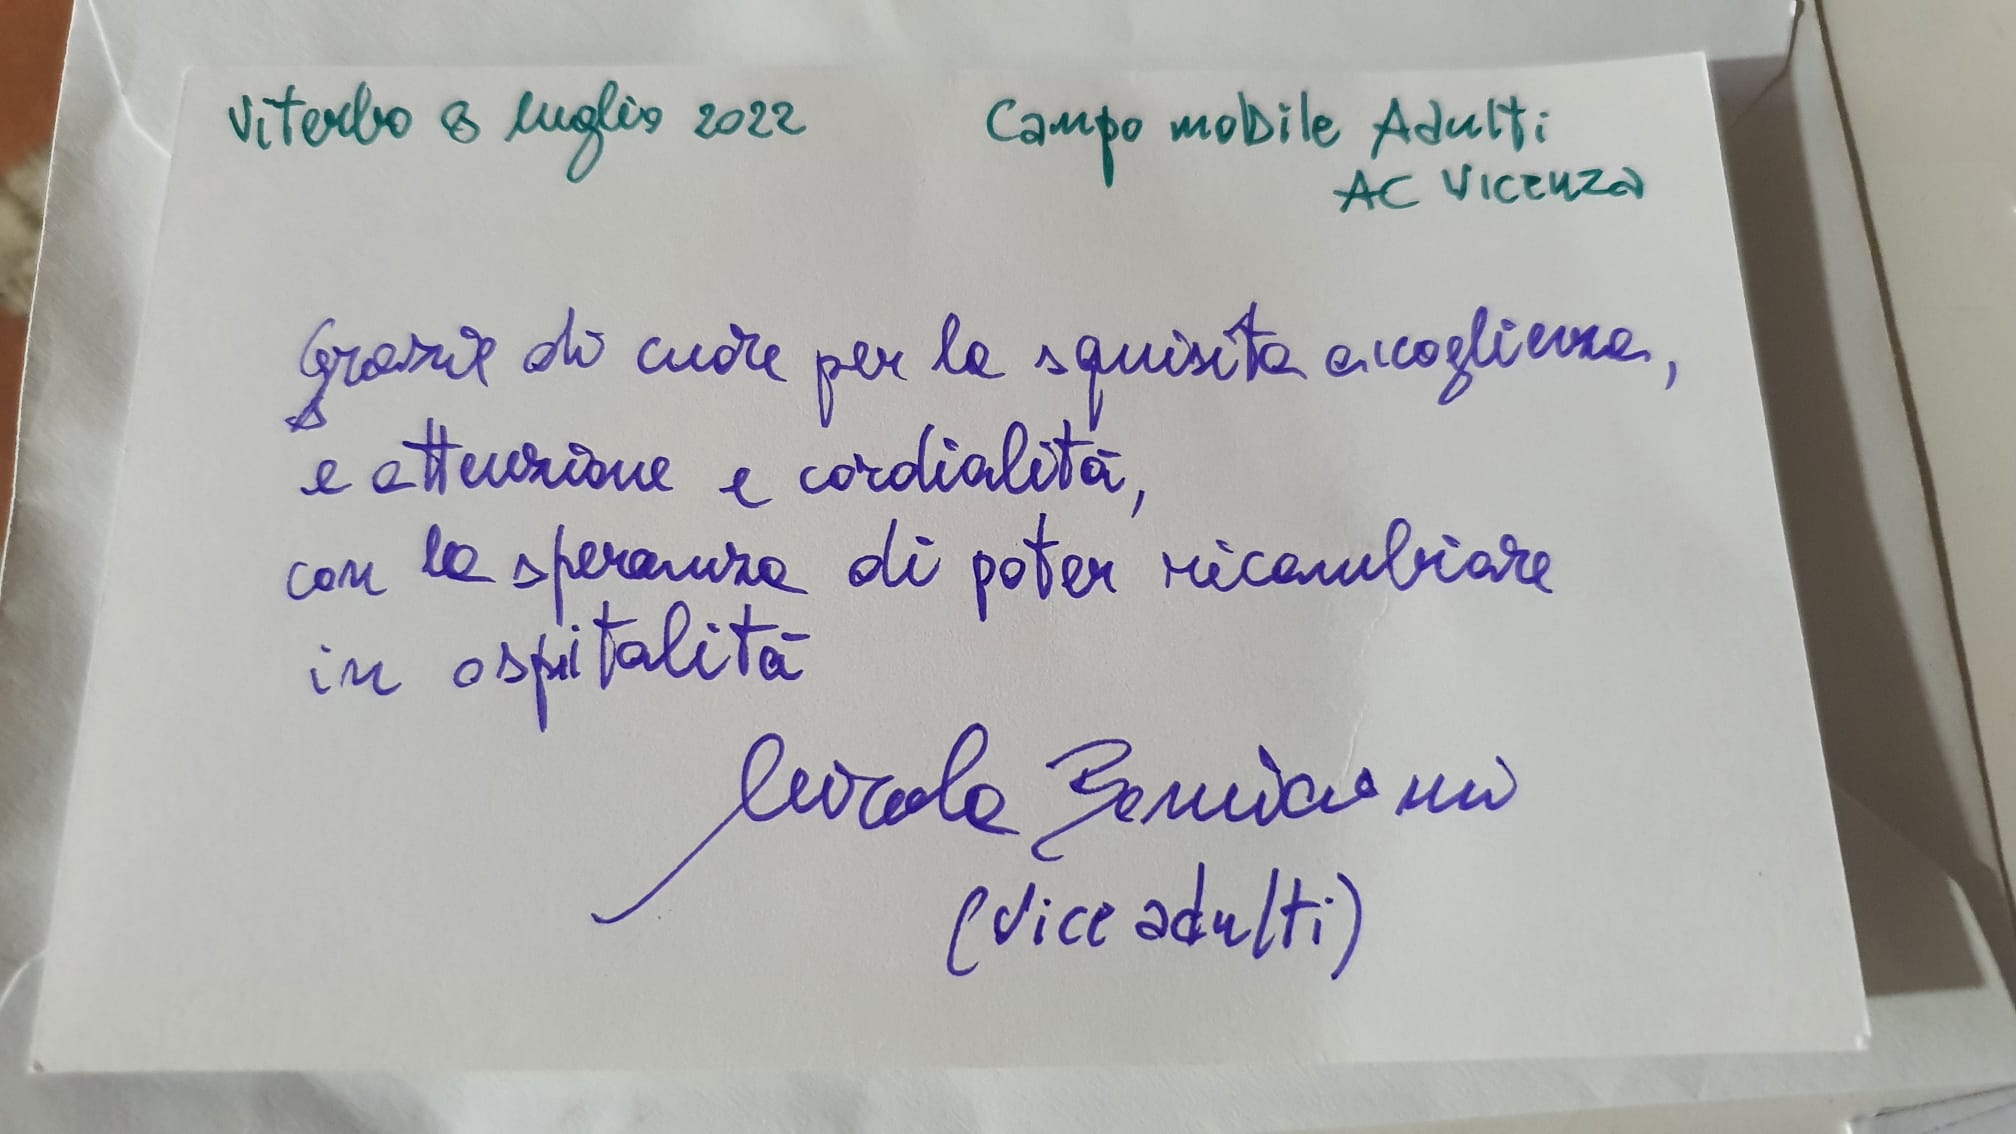 Viterbo 8 luglio 2022
Campo mobile Adulti
AC Vicenza
Grazie di cuore per la squisita accoglienza,
e attenzione e cordialità,
con la speranza di poter ricambiare
in ospitalità
(Vice adulti)